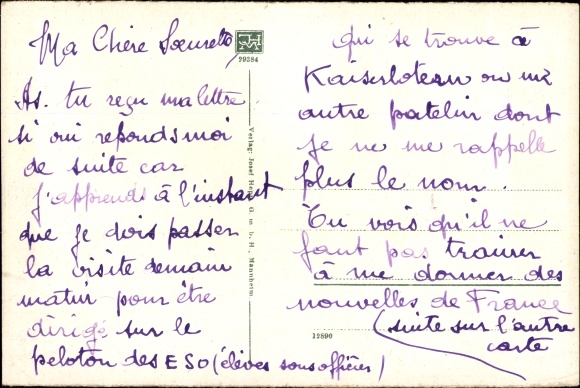 Ma Chère Soeurette
As. tu reçu ma lettre
si oui réponds moi
de suite car
j'apprends à l'instant
que je dois passer
la visite demain
matin pour être
dirigé sur le
peloton des ESO (élèves sous officier)
29284
Verlag: Josef G. m. b. H., Mannheim
qui se trouve à
Kaiserlotern ou une
autre patelin dont
je ne me rappelle
plus le nom.
Tu vois qu'il ne
faut pas trainer
à me donner des
nouvelles de France
(suite sur l'autre
carte
12890